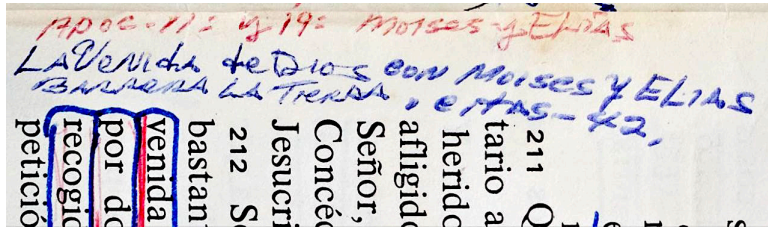 Apoc-11: y 19: Moises y ELIAS
LA Venida de Dios con Moises y ELIAS
BARRERA LA TIERRA, citas-42,
211 Q
tario a
herido
afligido
Señor,
Concéd
Jesucri
212 Se
bastan
venida
por do
recogid
petició